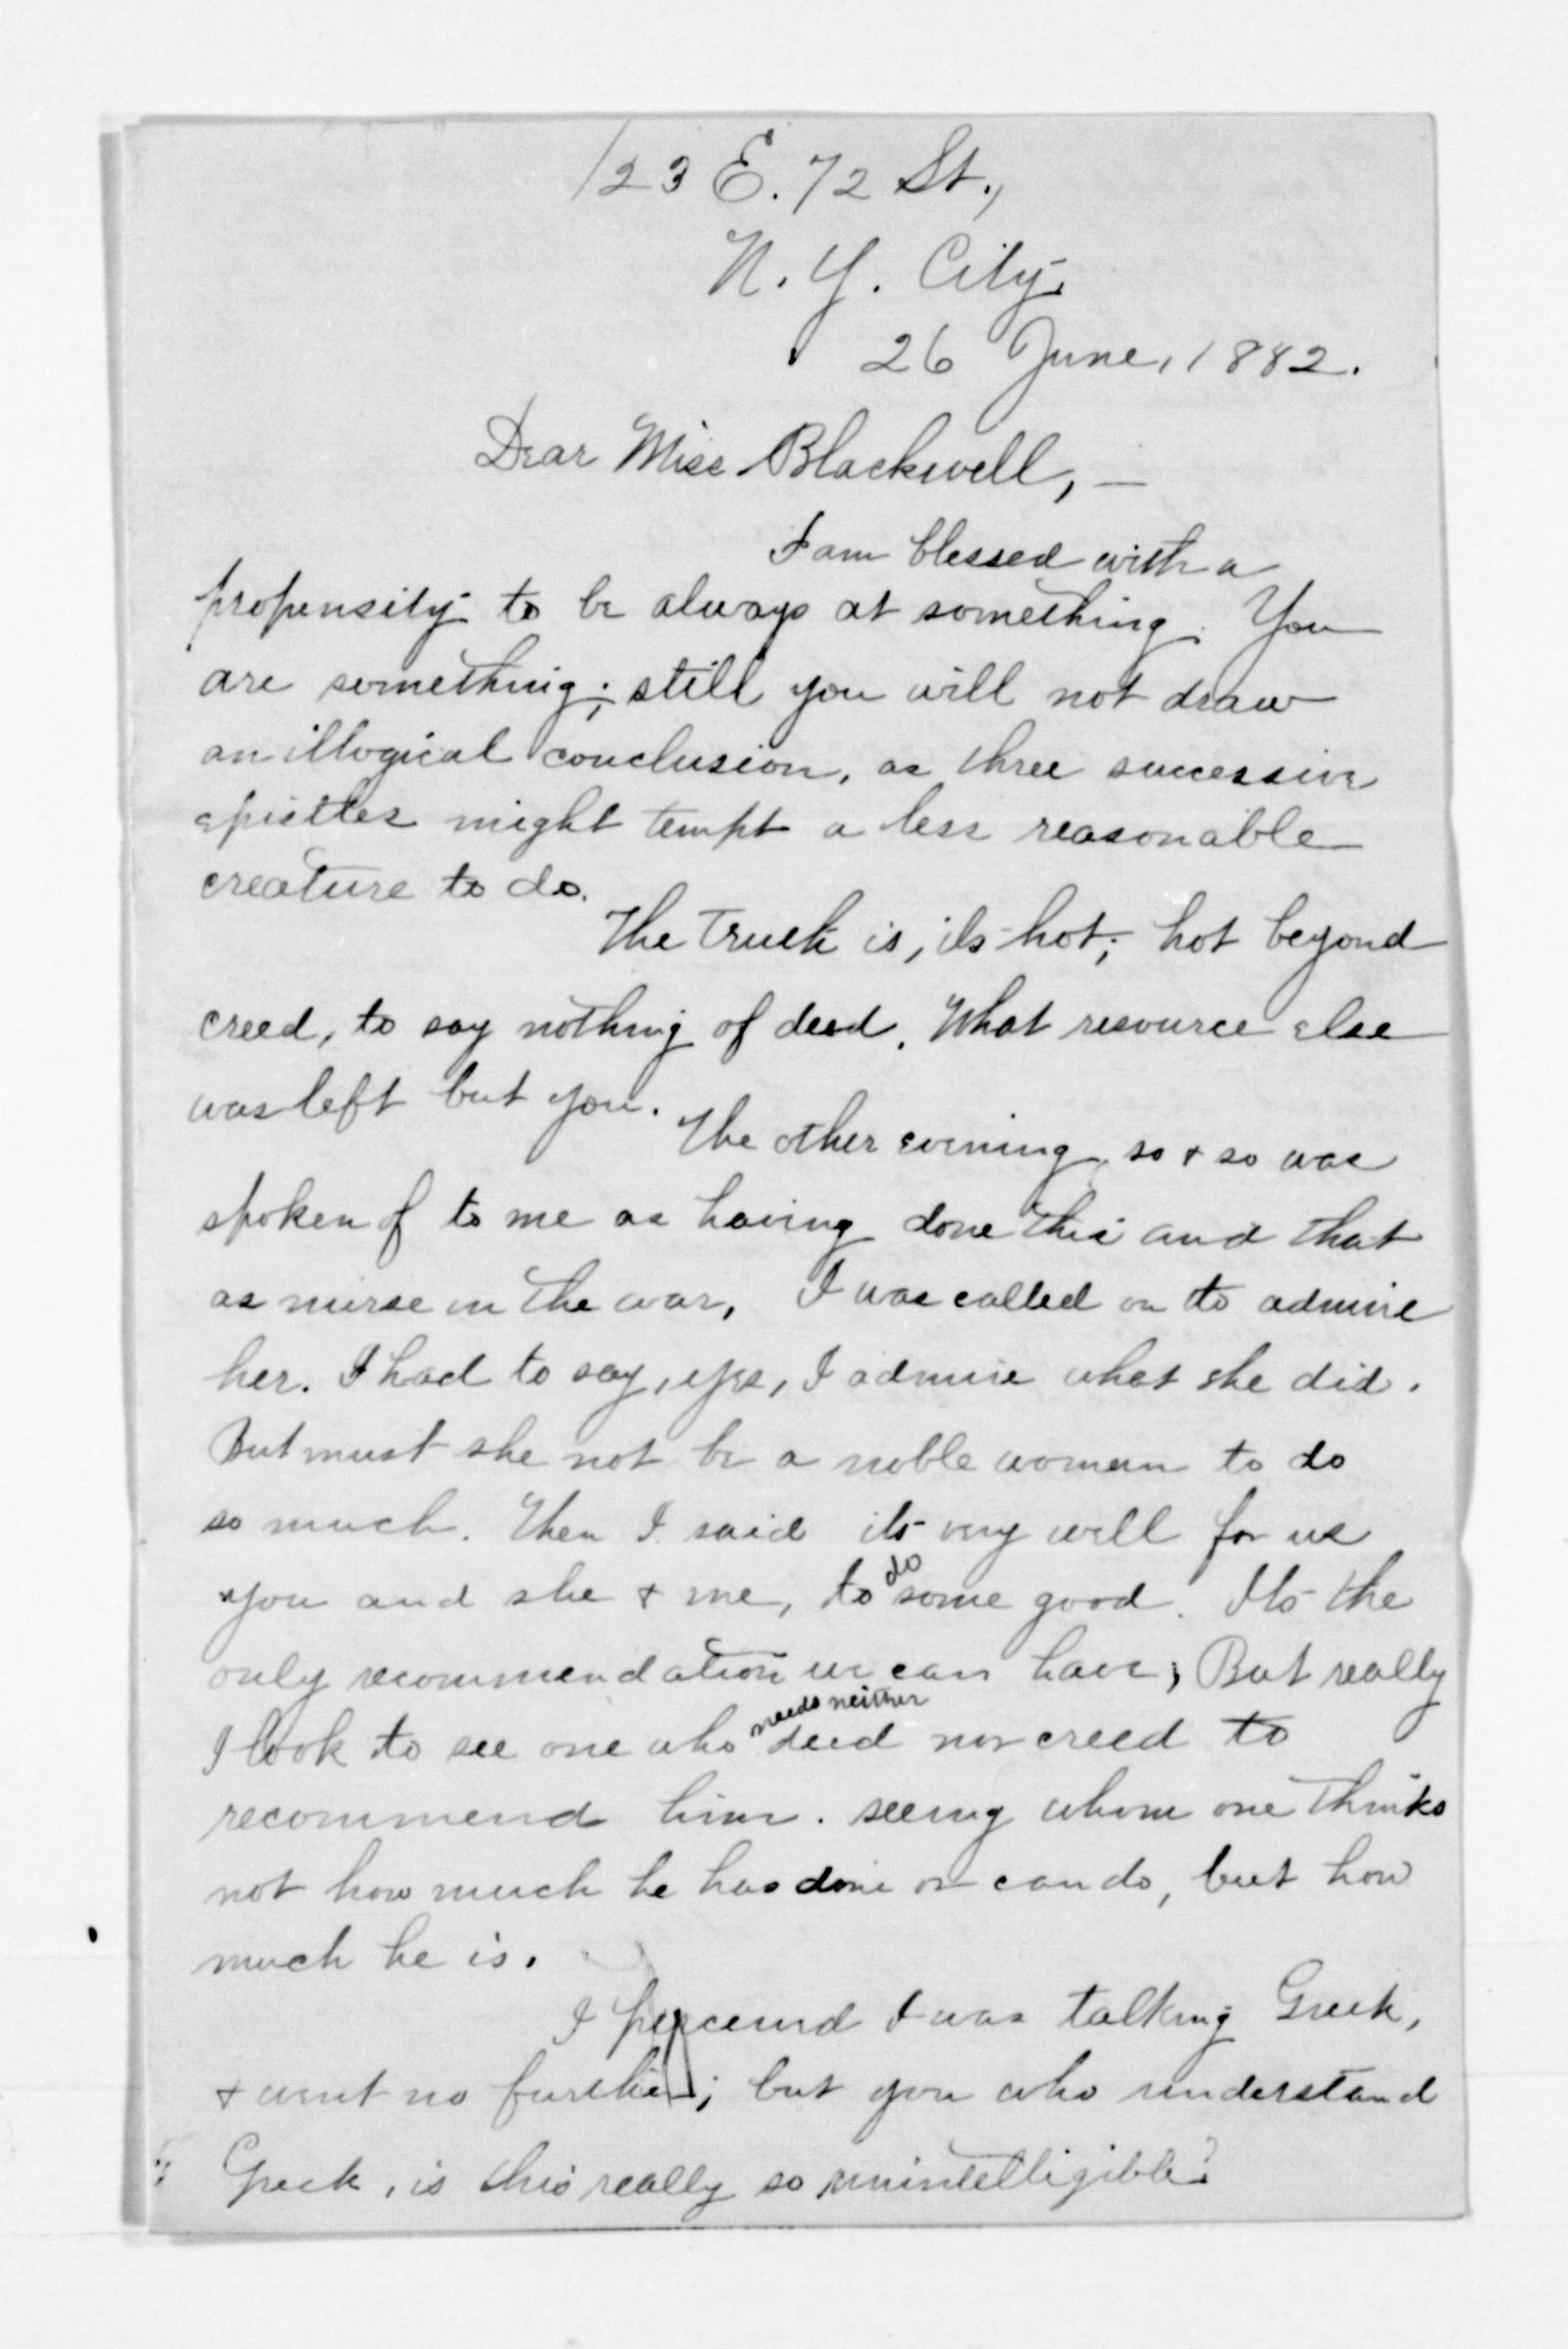 123 E. 72 St.,
N. Y. City.
26 June, 1882.
Dear Miss Blackwell, —
I am blessed with a
propensity to be always at something. You
are something; still you will not draw
an illogical conclusion, as three successive
epistles might tempt a less reasonable
creature to do.
The truth is, its hot; hot beyond
creed, to say nothing of deed. What resource else
was left but you.
The other evening so & so was
spoken of to me as having done this and that
as nurse in the war, I was called on to admire
her. I had to say, yes, I admire what she did.
But must she not be a noble woman to do
so much. Then I said its very well for us
you and she & me, to do some good. Its the
only recommendation we can have; But really
I look to see one who needs neither deed nor creed to
recommend him. seeing whom one thinks
not how much he has done or can do, but how
much he is.
I perceived I was talking Greek,
& went no further; but you who understand
Greek, is this really so unintelligible?